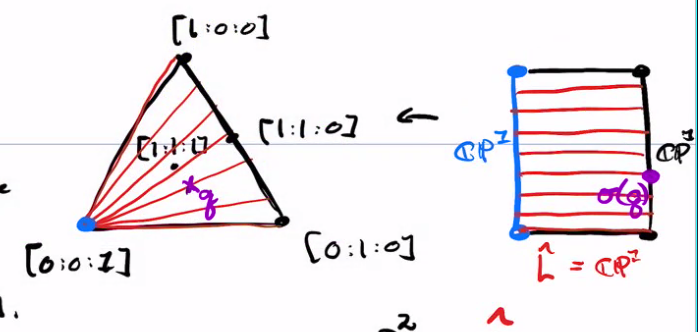 [1:0:0]
[1:1:0]
[1:1:1]
*q
[0:0:1]
[0:1:0]
←
ℂP¹
ℂP¹
σ(q)
L̂ = ℂP¹
2
^